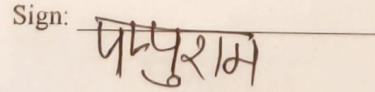 Sign: पप्पुराम